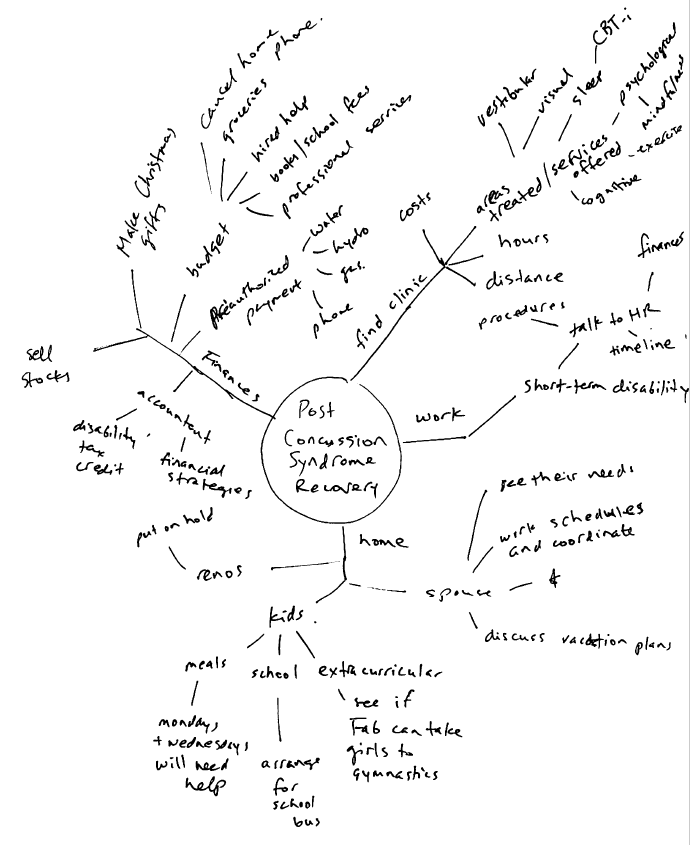 Post
Concussion
Syndrome
Recovery
Finances
Make Christmas
gifts
sell
stocks
budget
cancel home
phone.
groceries
hired help
books/school fees
professional services
Preauthorized
payment
water
hydro
gas.
phone
accountant
disability
tax
credit
financial
strategies
find clinic
costs
areas
treated/services
offered
vestibular
visual
sleep
CBT-i
psychological
mindfulness
exercise
cognitive
hours
distance
work
short-term disability
talk to HR
procedures
finances
timeline
home
renos
put on hold
spouse
see their needs
work schedules
and coordinate
discuss vacation plans
kids.
meals
mondays
+ wednesdays
will need
help
school
arrange
for
school
bus
extracurricular
see if
Fab can take
girls to
gymnastics